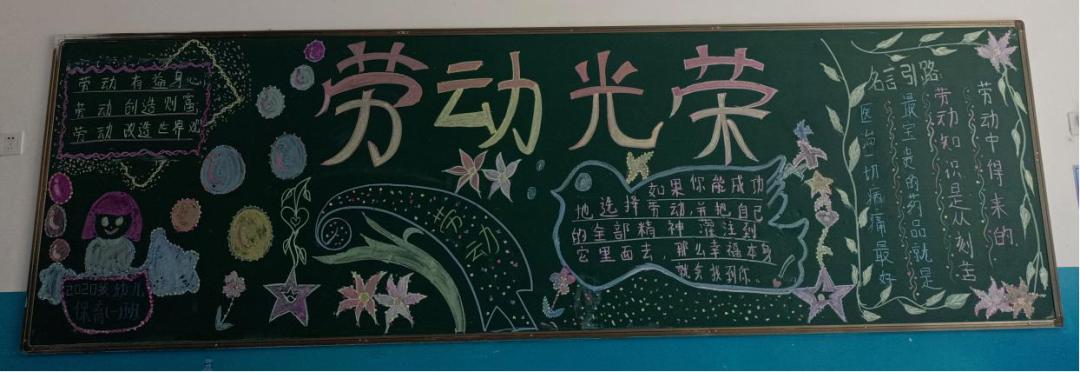 劳动光荣
劳动有益身心
劳动创造财富
劳动改造世界观
2020级幼儿
保育(一)班
劳动
如果你能成功
地选择劳动,并把自己
的全部精神灌注到
它里面去,那么幸福本身
就会找到你
名言引路
医治一切病痛最好
最宝贵的药品就是
劳动知识是从刻苦
劳动中得来的